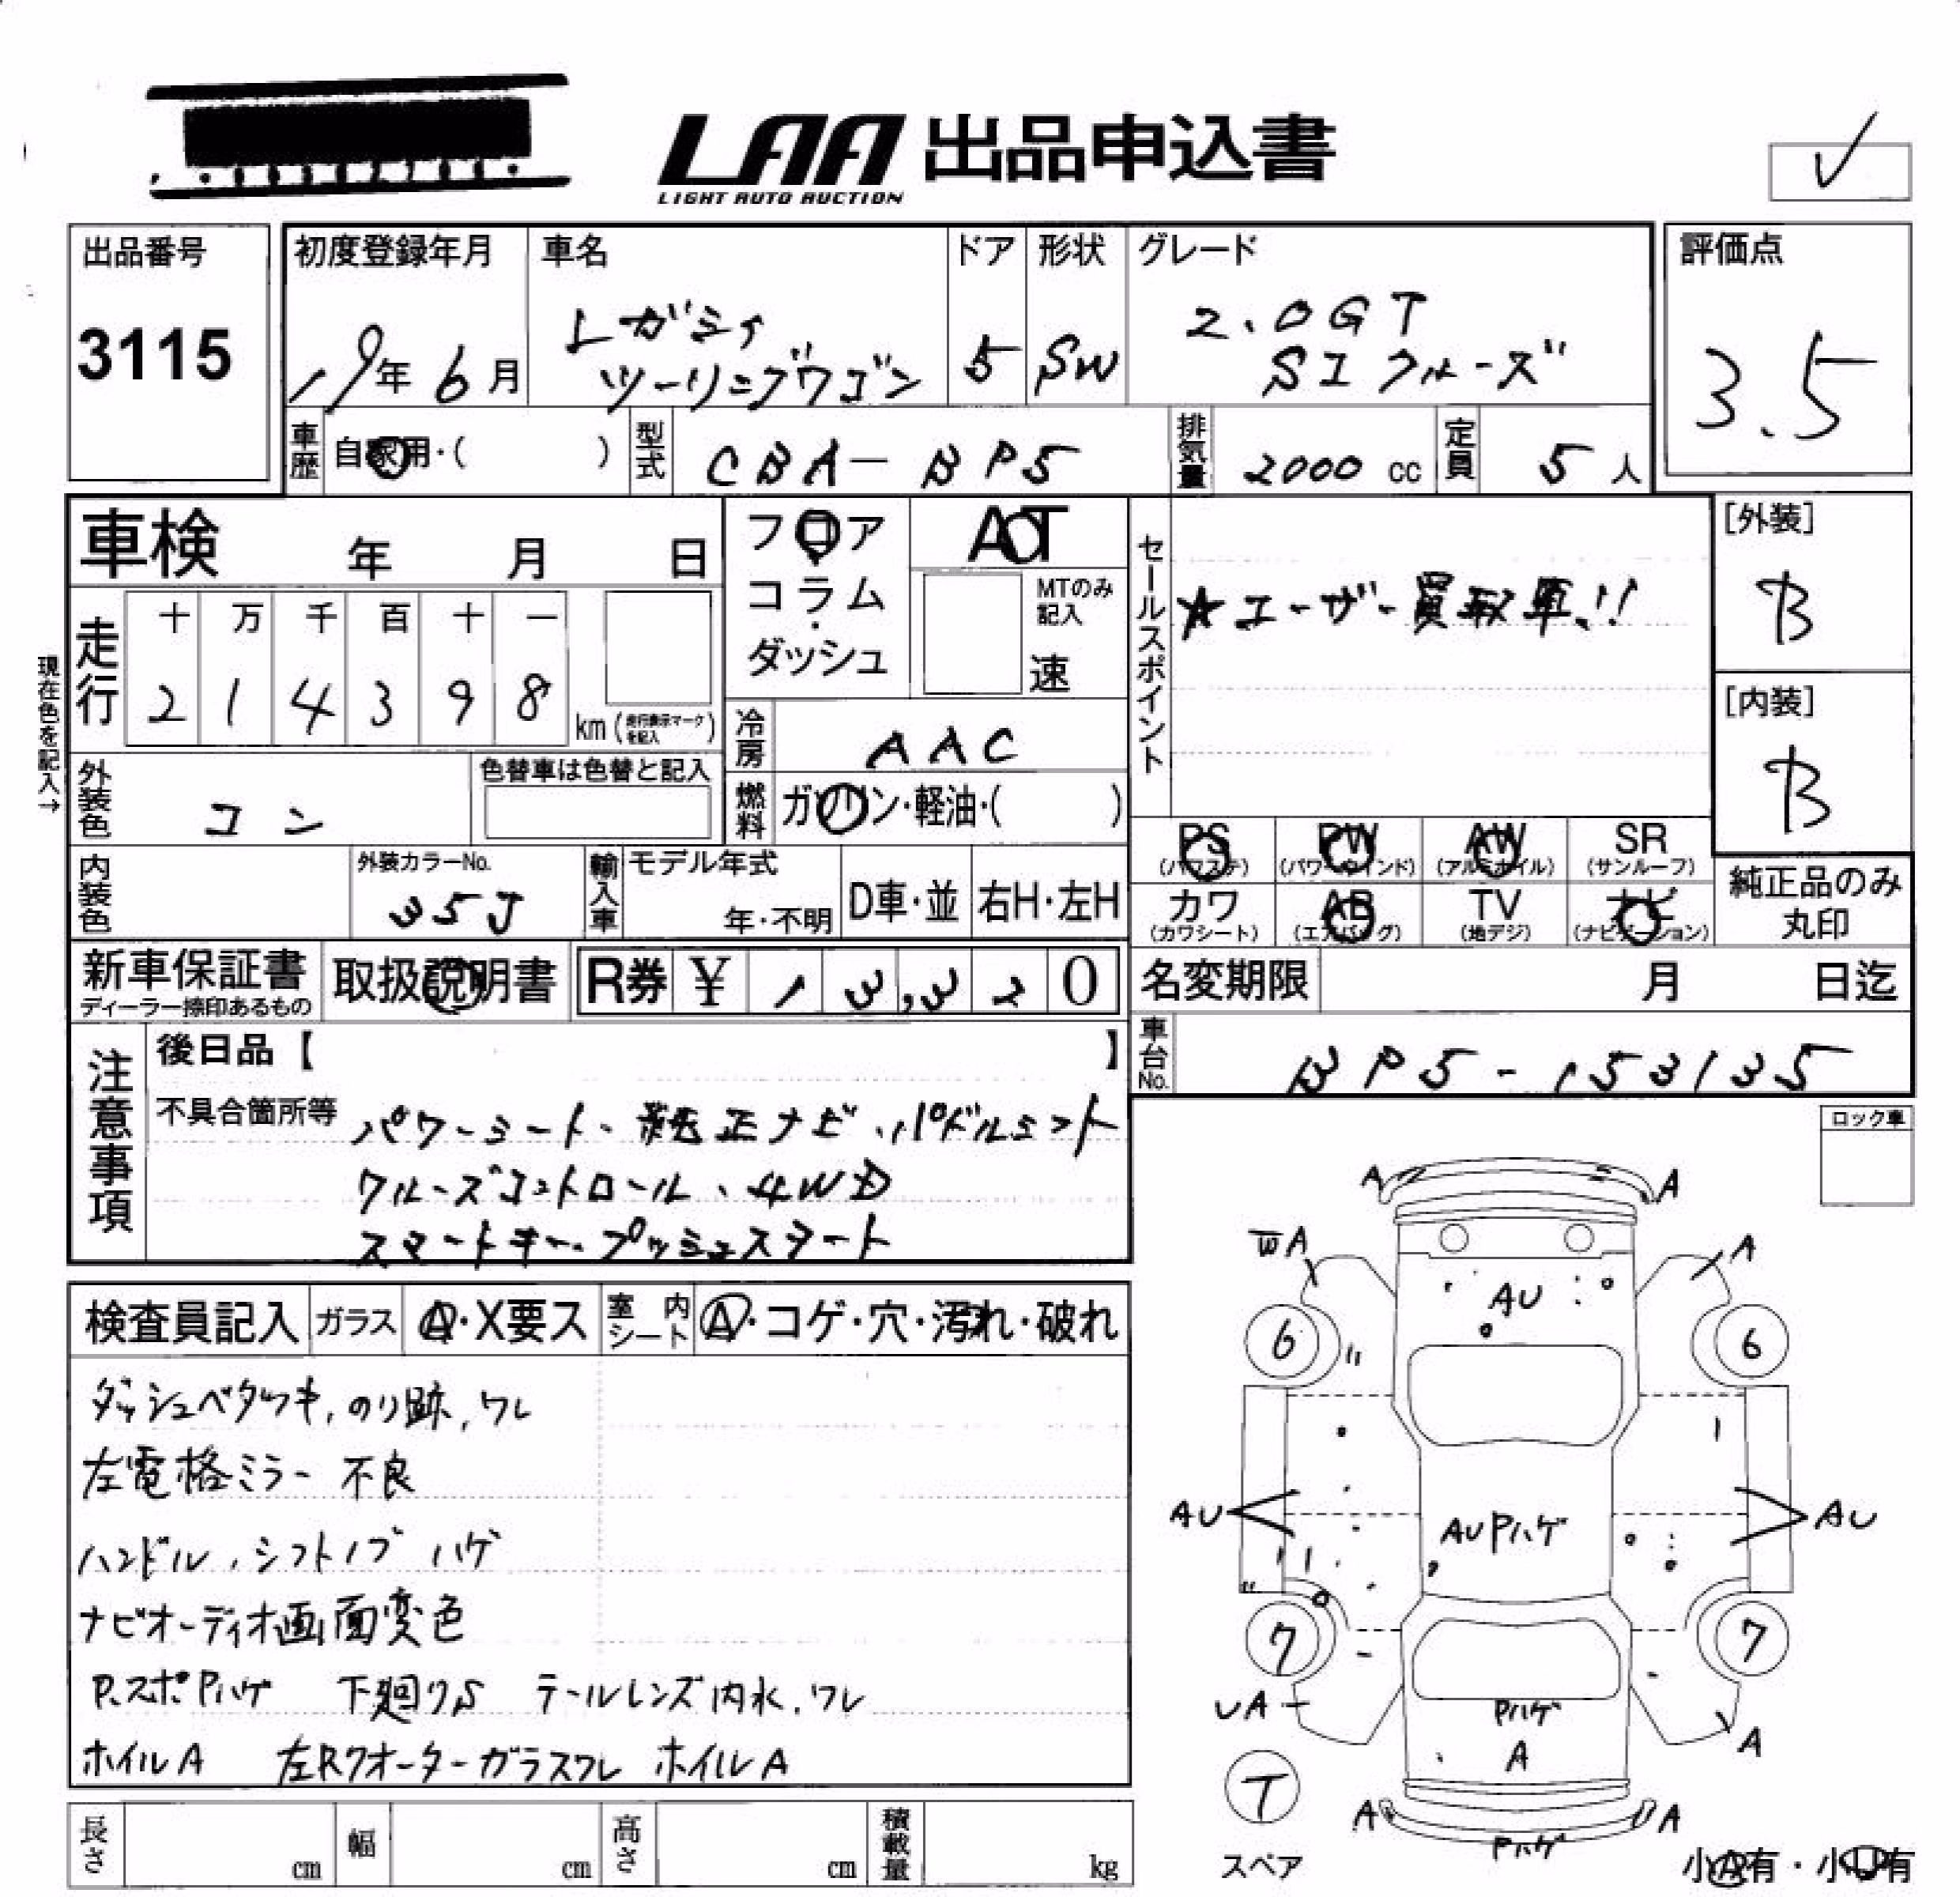 LAA 出品申込書
LIGHT AUTO AUCTION
✓
出品番号
3115
初度登録年月
19年 6月
車名
レガシィ
ツーリングワゴン
ドア
5
形状
SW
グレード
2.0GT
SIクルーズ
評価点
3.5
車歴
自家用・( )
型式
CBA-BP5
排気量
2000 cc
定員
5 人
車検 年 月 日
フロア
コラム
・
ダッシュ
AT
MTのみ
記入
速
セールスポイント
★ユーザー買取車!!
[外装]
B
[内装]
B
現在色を記入→
走行
十 万 千 百 十 一
2 1 4 3 9 8
km(走行表示マークを記入)
冷房
AAC
外装色
コン
色替車は色替と記入
燃料
ガソリン・軽油・( )
PS
(パワステ)
PW
(パワーウインド)
AW
(アルミホイル)
SR
(サンルーフ)
カワ
(カワシート)
AB
(エアバッグ)
TV
(地デジ)
ナビ
(ナビゲーション)
純正品のみ
丸印
内装色
外装カラーNo.
35J
輸入車
モデル年式
年・不明
D車・並
右H・左H
新車保証書
ディーラー捺印あるもの
取扱説明書
R券 ¥ 13,320
名変期限 月 日迄
車台No.
BP5-153135
注意事項
後日品【 】
不具合箇所等
パワーシート、純正ナビ、パドルシフト
クルーズコントロール、4WD
スマートキー、プッシュスタート
ロック車
検査員記入
ガラス
A・X要ス
室内シート
A・コゲ・穴・汚れ・破れ
ダッシュベタツキ,のり跡,ワレ
左電格ミラー 不良
ハンドル,シフトノブ ハゲ
ナビオーディオ画面変色
P,スポPハゲ 下廻りS テールレンズ内水,ワレ
ホイルA 左Rクオーターガラスワレ ホイルA
A A
WA A
AU
6 6
〃
AU AUPハゲ AU
〃
7 7
UA
Pハゲ
A A
T
A A
Pハゲ
スペア
小A有・小U有
長さ cm
幅 cm
高さ cm
積載量 kg